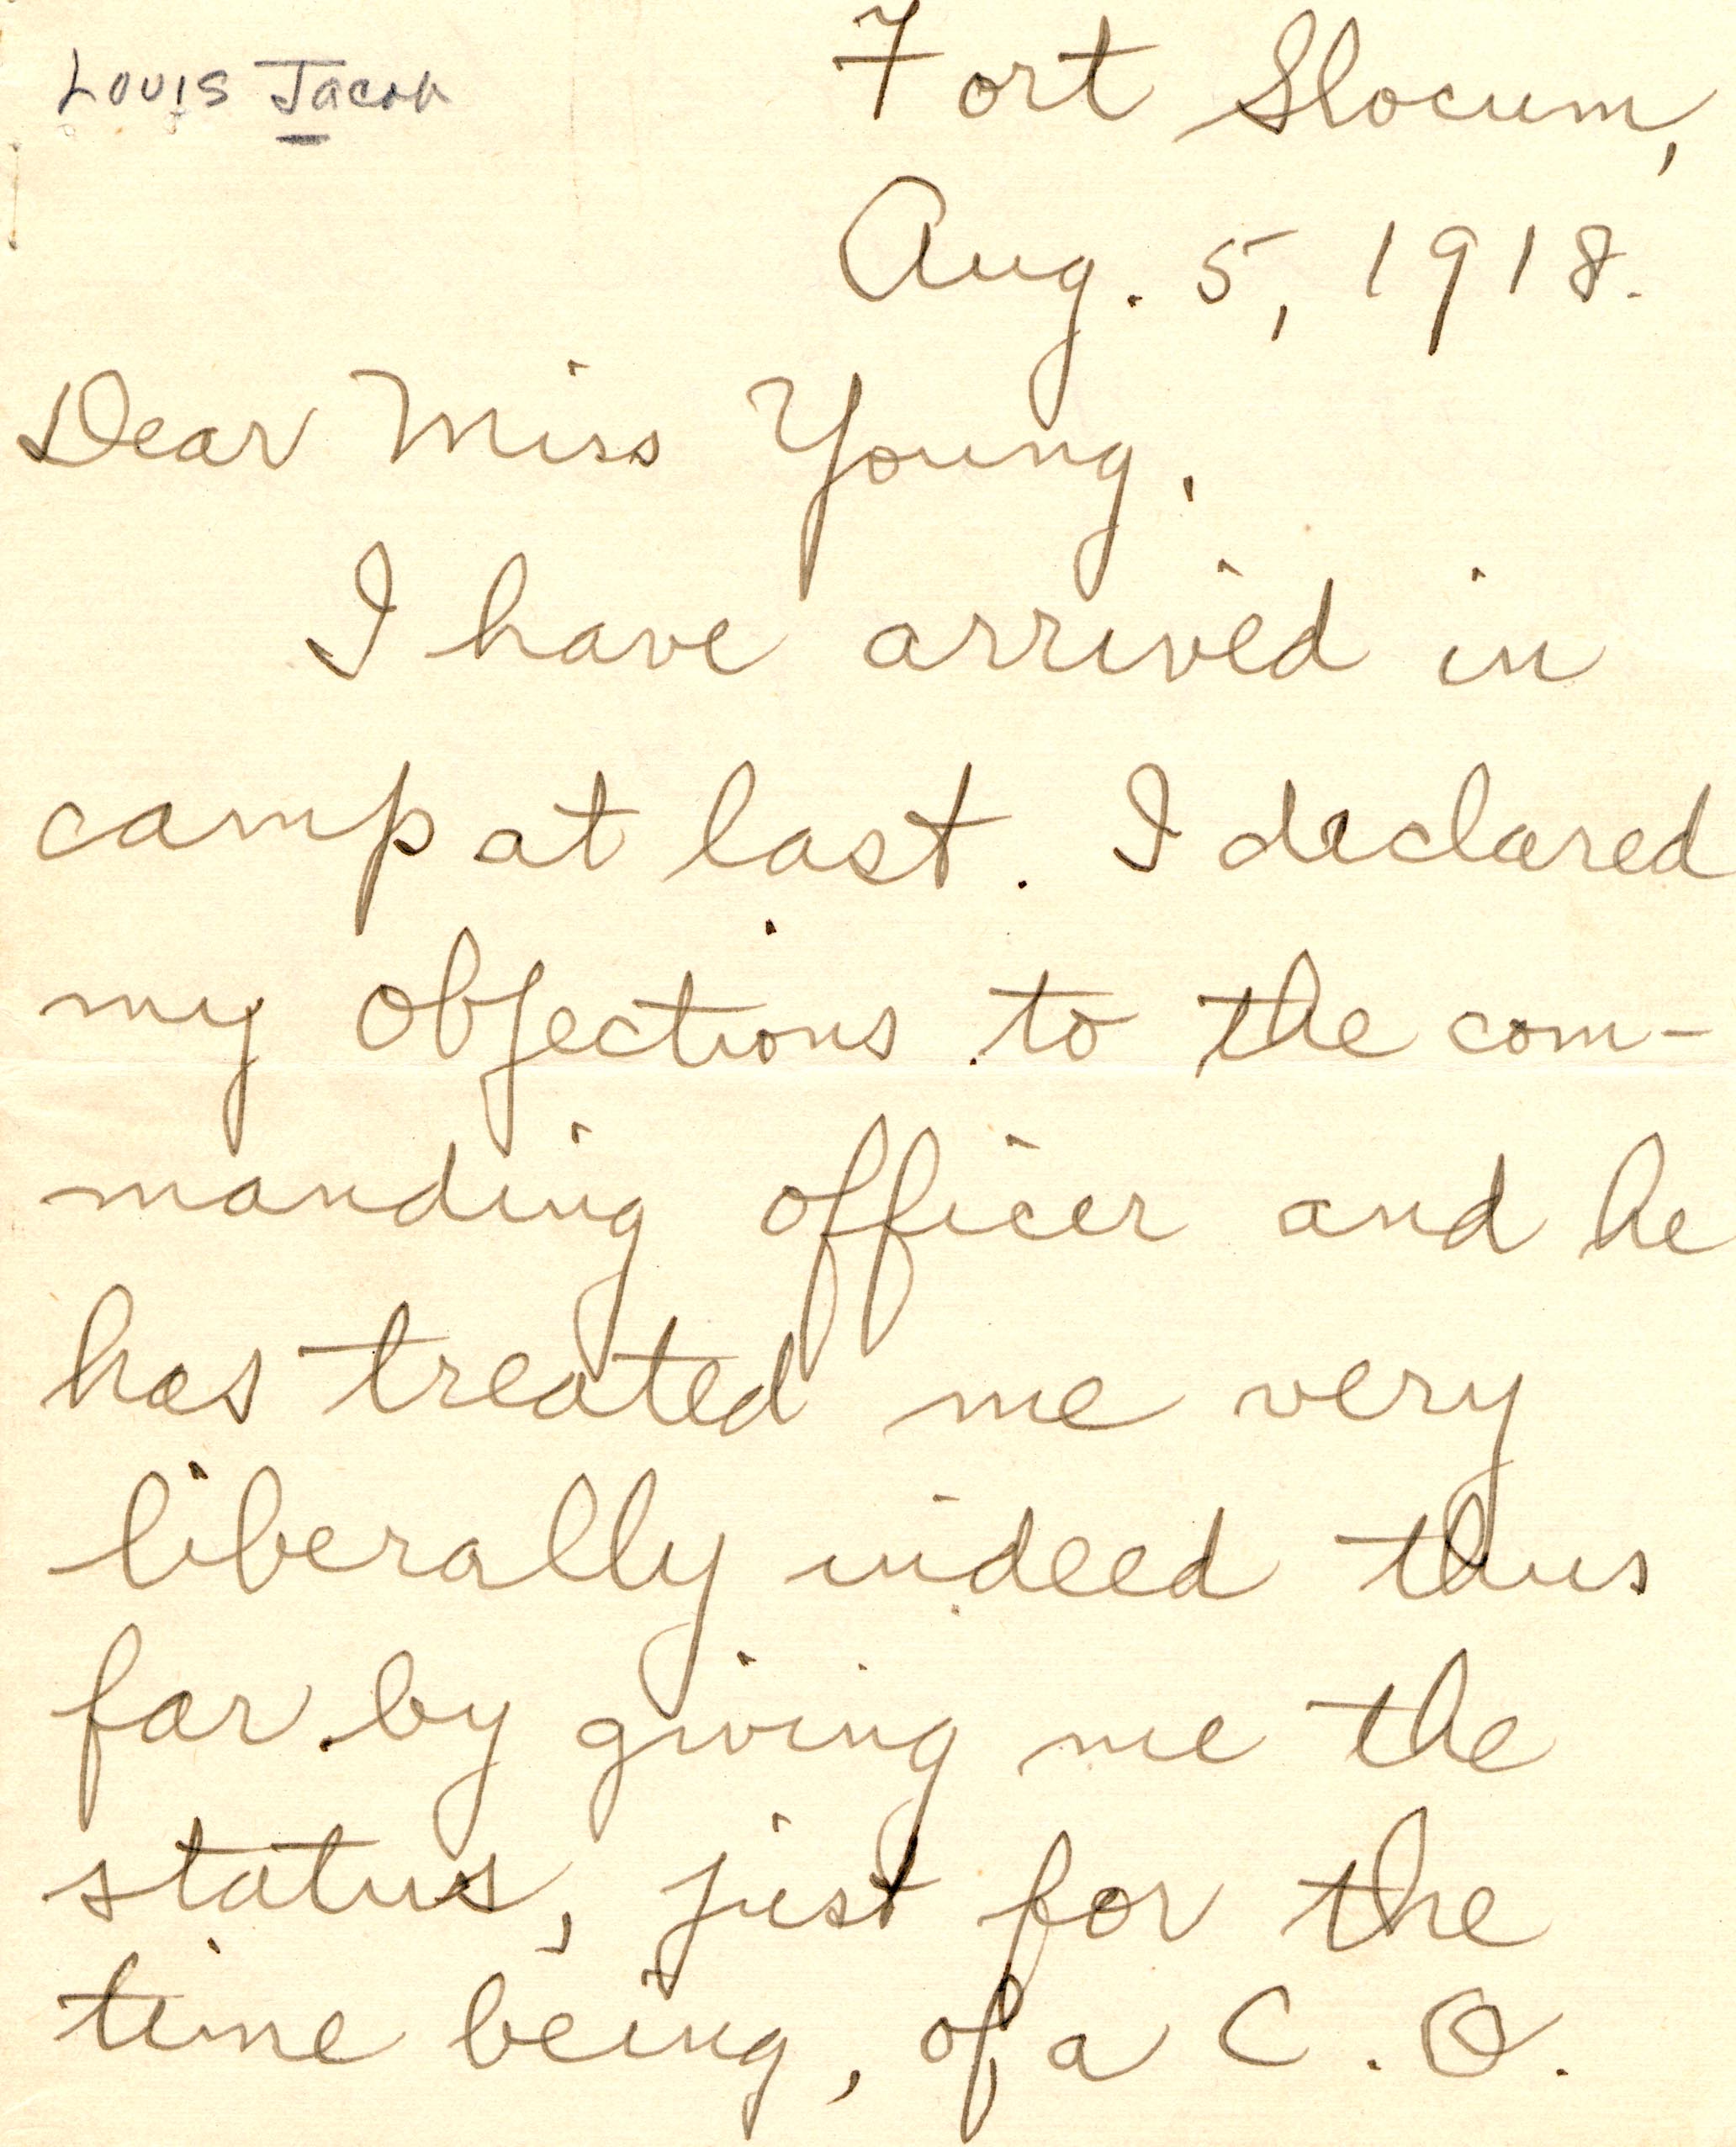 Louis Jacob
Fort Slocum,
Aug. 5, 1918.
Dear Miss Young,
I have arrived in
camp at last. I declared
my objections to the com-
manding officer and he
has treated me very
liberally indeed thus
far by giving me the
status, just for the
time being, of a C.O.